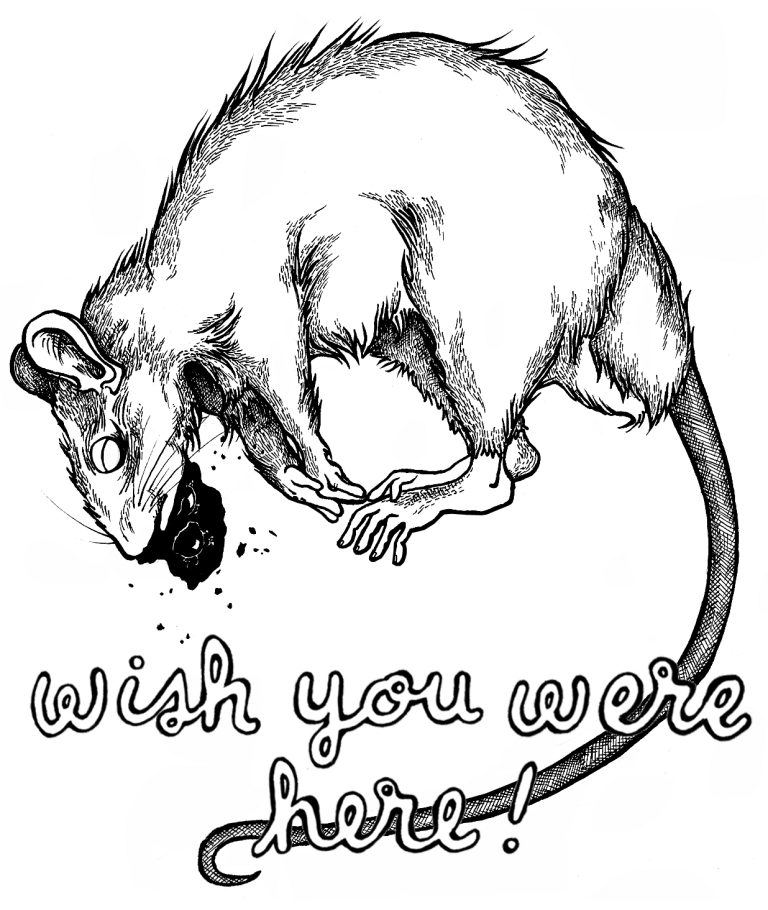 wish you were
here!